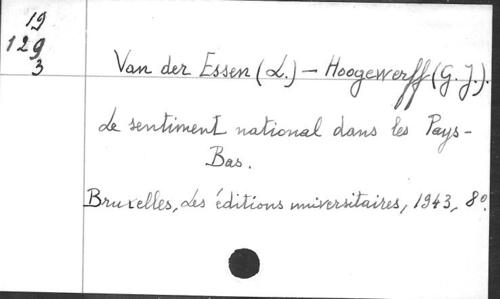 19
129
3
Van der Essen (L.) - Hoogewerff (G. J.).
Le sentiment national dans les Pays-
Bas.
Bruxelles, Les éditions universitaires, 1943, 8º.